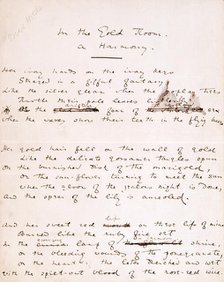 In the Gold Room.
A Harmony.
Her ivory hands on the ivory keys
Strayed in a fitful fantasy
Like the silver gleam when the poplar trees
Rustle their pale leaves listlessly
Or the foam of a sea
When the waves show their teeth in the flying breeze
Her gold hair fell on the wall of gold
Like the delicate gossamer tangles spun
On the burnished disk of the marigold,
Or the sun flower turning to meet the sun
When the gloom of the jealous night is done,
And the spear of the lily is aureoled.
And her sweet red lips on these lips of mine
Burned like the ruby fire set
In the swinging lamp of a crimson shrine,
Or the bleeding wounds of the pomegranate,
Or the heart of the lotus drenched and wet
With the spilt-out blood of the rose-red wine